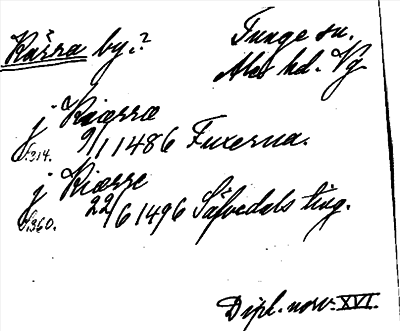 Kärra by.?
Tunge sn.
Ale hd. Vg
j Kiærræ
S.314. 9/1 1486 Fuxerna.
j Kiærre
S.360. 22/6 1496 Sävedals ting.
Dipl. norv. XVI.